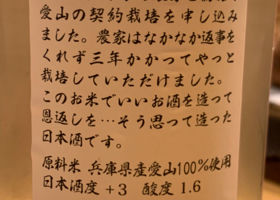 愛山の契約栽培を申し込み
ました。農家はなかなか返事を
くれず三年かかってやっと
栽培していただけました。
このお米でいいお酒を造って
恩返しを…そう思って造った
日本酒です。
原料米 兵庫県産愛山100%使用
日本酒度 +3 酸度 1.6